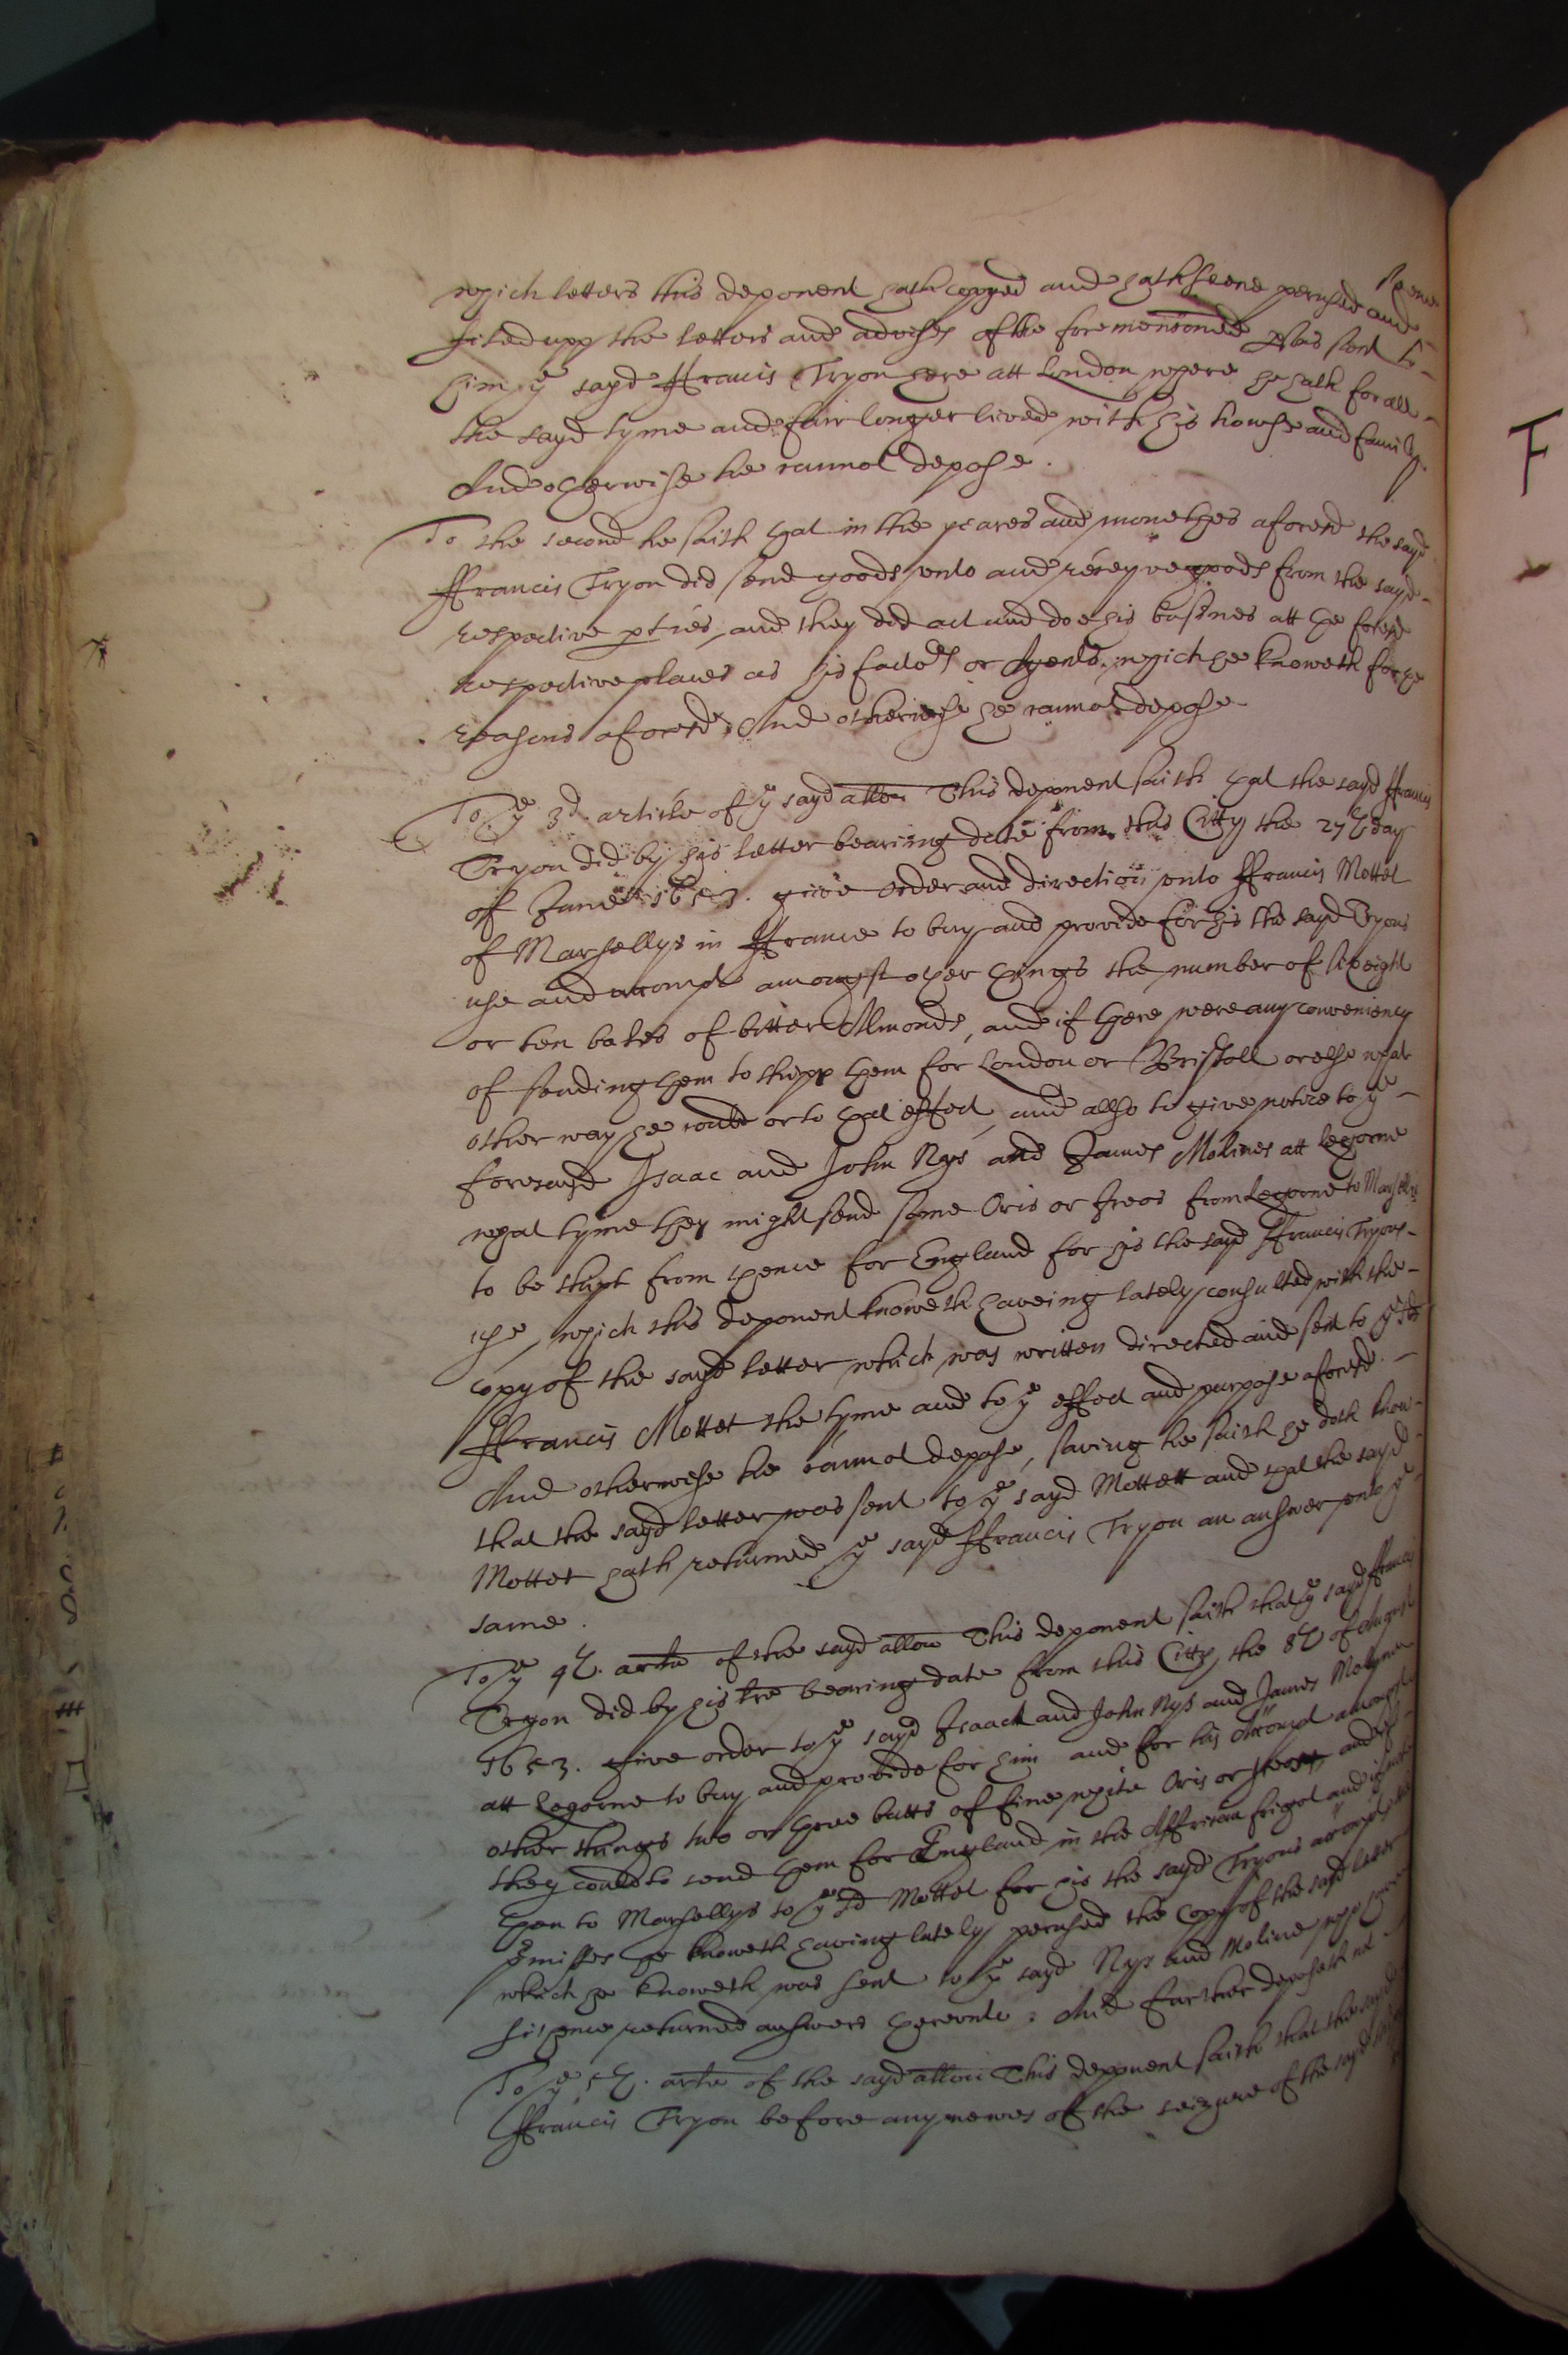 which letters this deponent hath copyed and hath seene perused and
filed upp the letters and advises of the foremencioned pties sent to
him ye sayd Ffrancis Tryon here att London where he hath for all
the sayd tyme and farr longer lived with his howse and family
And otherwise he cannot depose.
To the second he saith that in the yeares and monethes aforesd the sayd
Ffrancis Tryon did send goods unto and receyve goods from the sayd
respective pties, and they did act and doe his busines att the foresd
respective places as his factors or Agents, which he knoweth for the
reasons aforesd, And otherwise he cannot depose
To ye 3d. article of ye sayd allon This deponent saith that the sayd Ffrancis
Tryon did by his letter bearing date from this Citty the 27th day
of June 1653. give order and direction unto Ffrancis Mottet
of Marsellys in Ffrance to buy and provide for his the sayd Tryons
use and accompt amongst other things the number of six eight
or ten bales of bitter Almonds, and if there were any conveniency
of sending them to shipp them for London or Bristoll or else what
other way he could or to that effect, and allso to give notice to ye
foresayd Isaac and John Nys and James Molines att Legorne
what tyme they might send some Oris or Ireos from Legorne to Marsellys
to be shipt from thence for England for his the sayd Ffrancis Tryons
use, which this deponent knoweth haveing lately consulted with the
copy of the sayd letter which was written directed and sent to ye sd
Ffrancis Mottet the tyme and to ye effect and purpose aforesd.
And otherwise he cannot depose, saving he saith he doth know
that the sayd letter was sent to ye sayd Mottett and that the sayd
Mottet hath returned ye sayd Ffrancis Tryon an answer unto ye
same.
To ye 4th. arte of the sayd allon This deponent saith that ye sayd Ffrancis
Tryon did by his lre bearing date from this Citty the 8th of August
1653. give order to ye sayd Isaack and John Nys and James Molynes
att Legorne to buy and provide for him and for his Accompt amongst
other things two or three butts of fine white Oris or Ireos and if
they could to send them for England in the Affrican frigot and if not
then to Marsellys to ye sd Mottet for his the sayd Tryons accompt
pmisses he knoweth having lately perused the copy of the sayd letter
which he knoweth was sent to ye sayd Nys and Moline who have
sithence returned answers thereunto. And farther deposeth not
To ye 5th. arte of the sayd allon This deponent saith that the sayd
Ffrancis Tryon before any newes of the seizure of the sayd